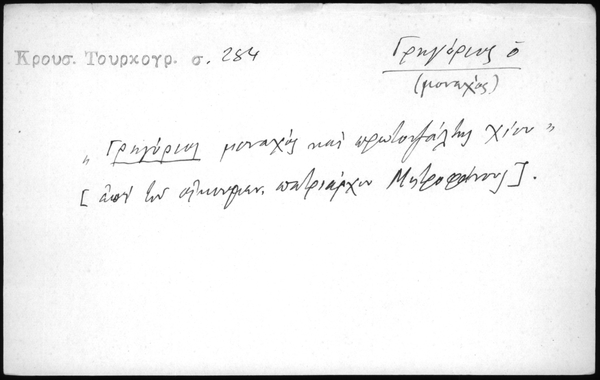 Κρουσ. Τουρκογρ. σ. 284
Γρηγόριος ὁ
(μοναχός)
„ Γρηγόριος μοναχός καὶ πρωτοψάλτης Χίου "
[ἐπί τοῦ οἰκουμεν. πατριάρχου Μητροφάνους].